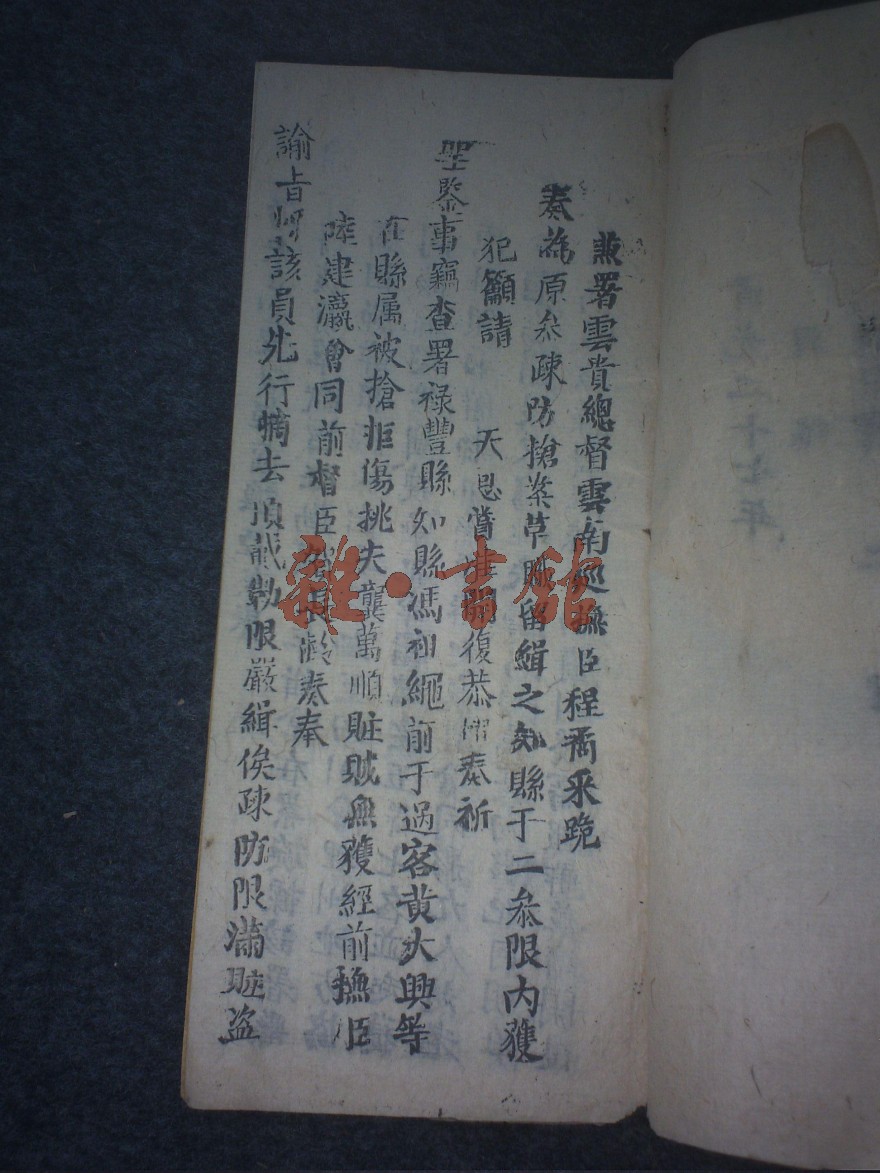 兼署雲貴總督雲南巡撫臣程矞采跪
奏為原叅疎防搶案革職留緝之知縣于二叅限内獲
犯籲請 天恩賞 開復恭摺奏祈
聖鑒事竊查署禄豐縣知縣馮祖繩前于過客黄大興等
在縣属被搶拒傷挑夫龔萬順賍賊無獲經前撫臣
陸建瀛會同前督臣 齡奏奉
諭旨將該員先行摘去頂戴勒限嚴緝俟疎防限滿賍盗
雜·書館